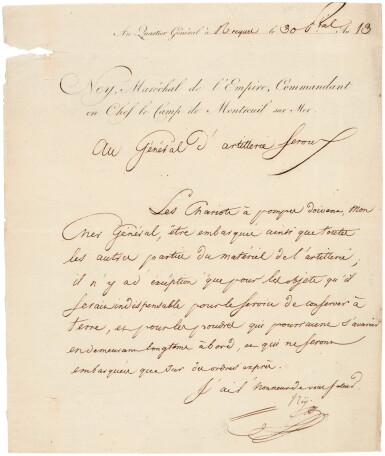 Au Quartier Général à Recque le 30 Pral an 13
Ney, Maréchal de l'Empire, Commandant
en Chef le Camp de Montreuil sur Mer.
Au Général d'artillerie Seroux
Les Chariots à pompes doivent, Mon
cher Général, être embarqué ainsi que toutes
les autres partie du matériel de l'artillerie,
il n'y a d'exception que pour les objets qu'il
serait indispensable pour le service de conserver à
terre, et pour les poudres qui pourraient s'avarier
en demeurant longtems à bord, et qui ne seront
embarquées que sur un ordre exprès.
J'ai l'honneur de vous saluer
Ney